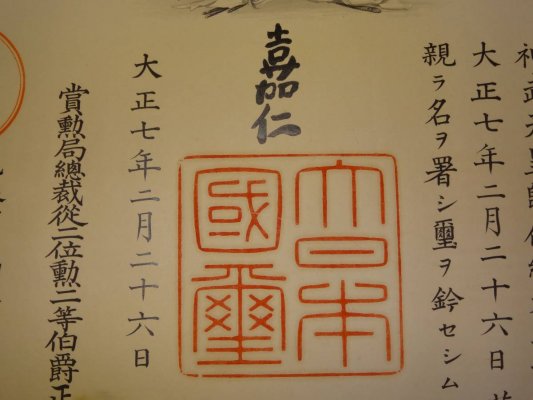 神武天皇即位紀
大正七年二月二十六日
親ラ名ヲ署シ璽ヲ鈐セシム
嘉仁
大日本
國璽
大正七年二月二十六日
賞勲局總裁從二位勲二等伯爵正